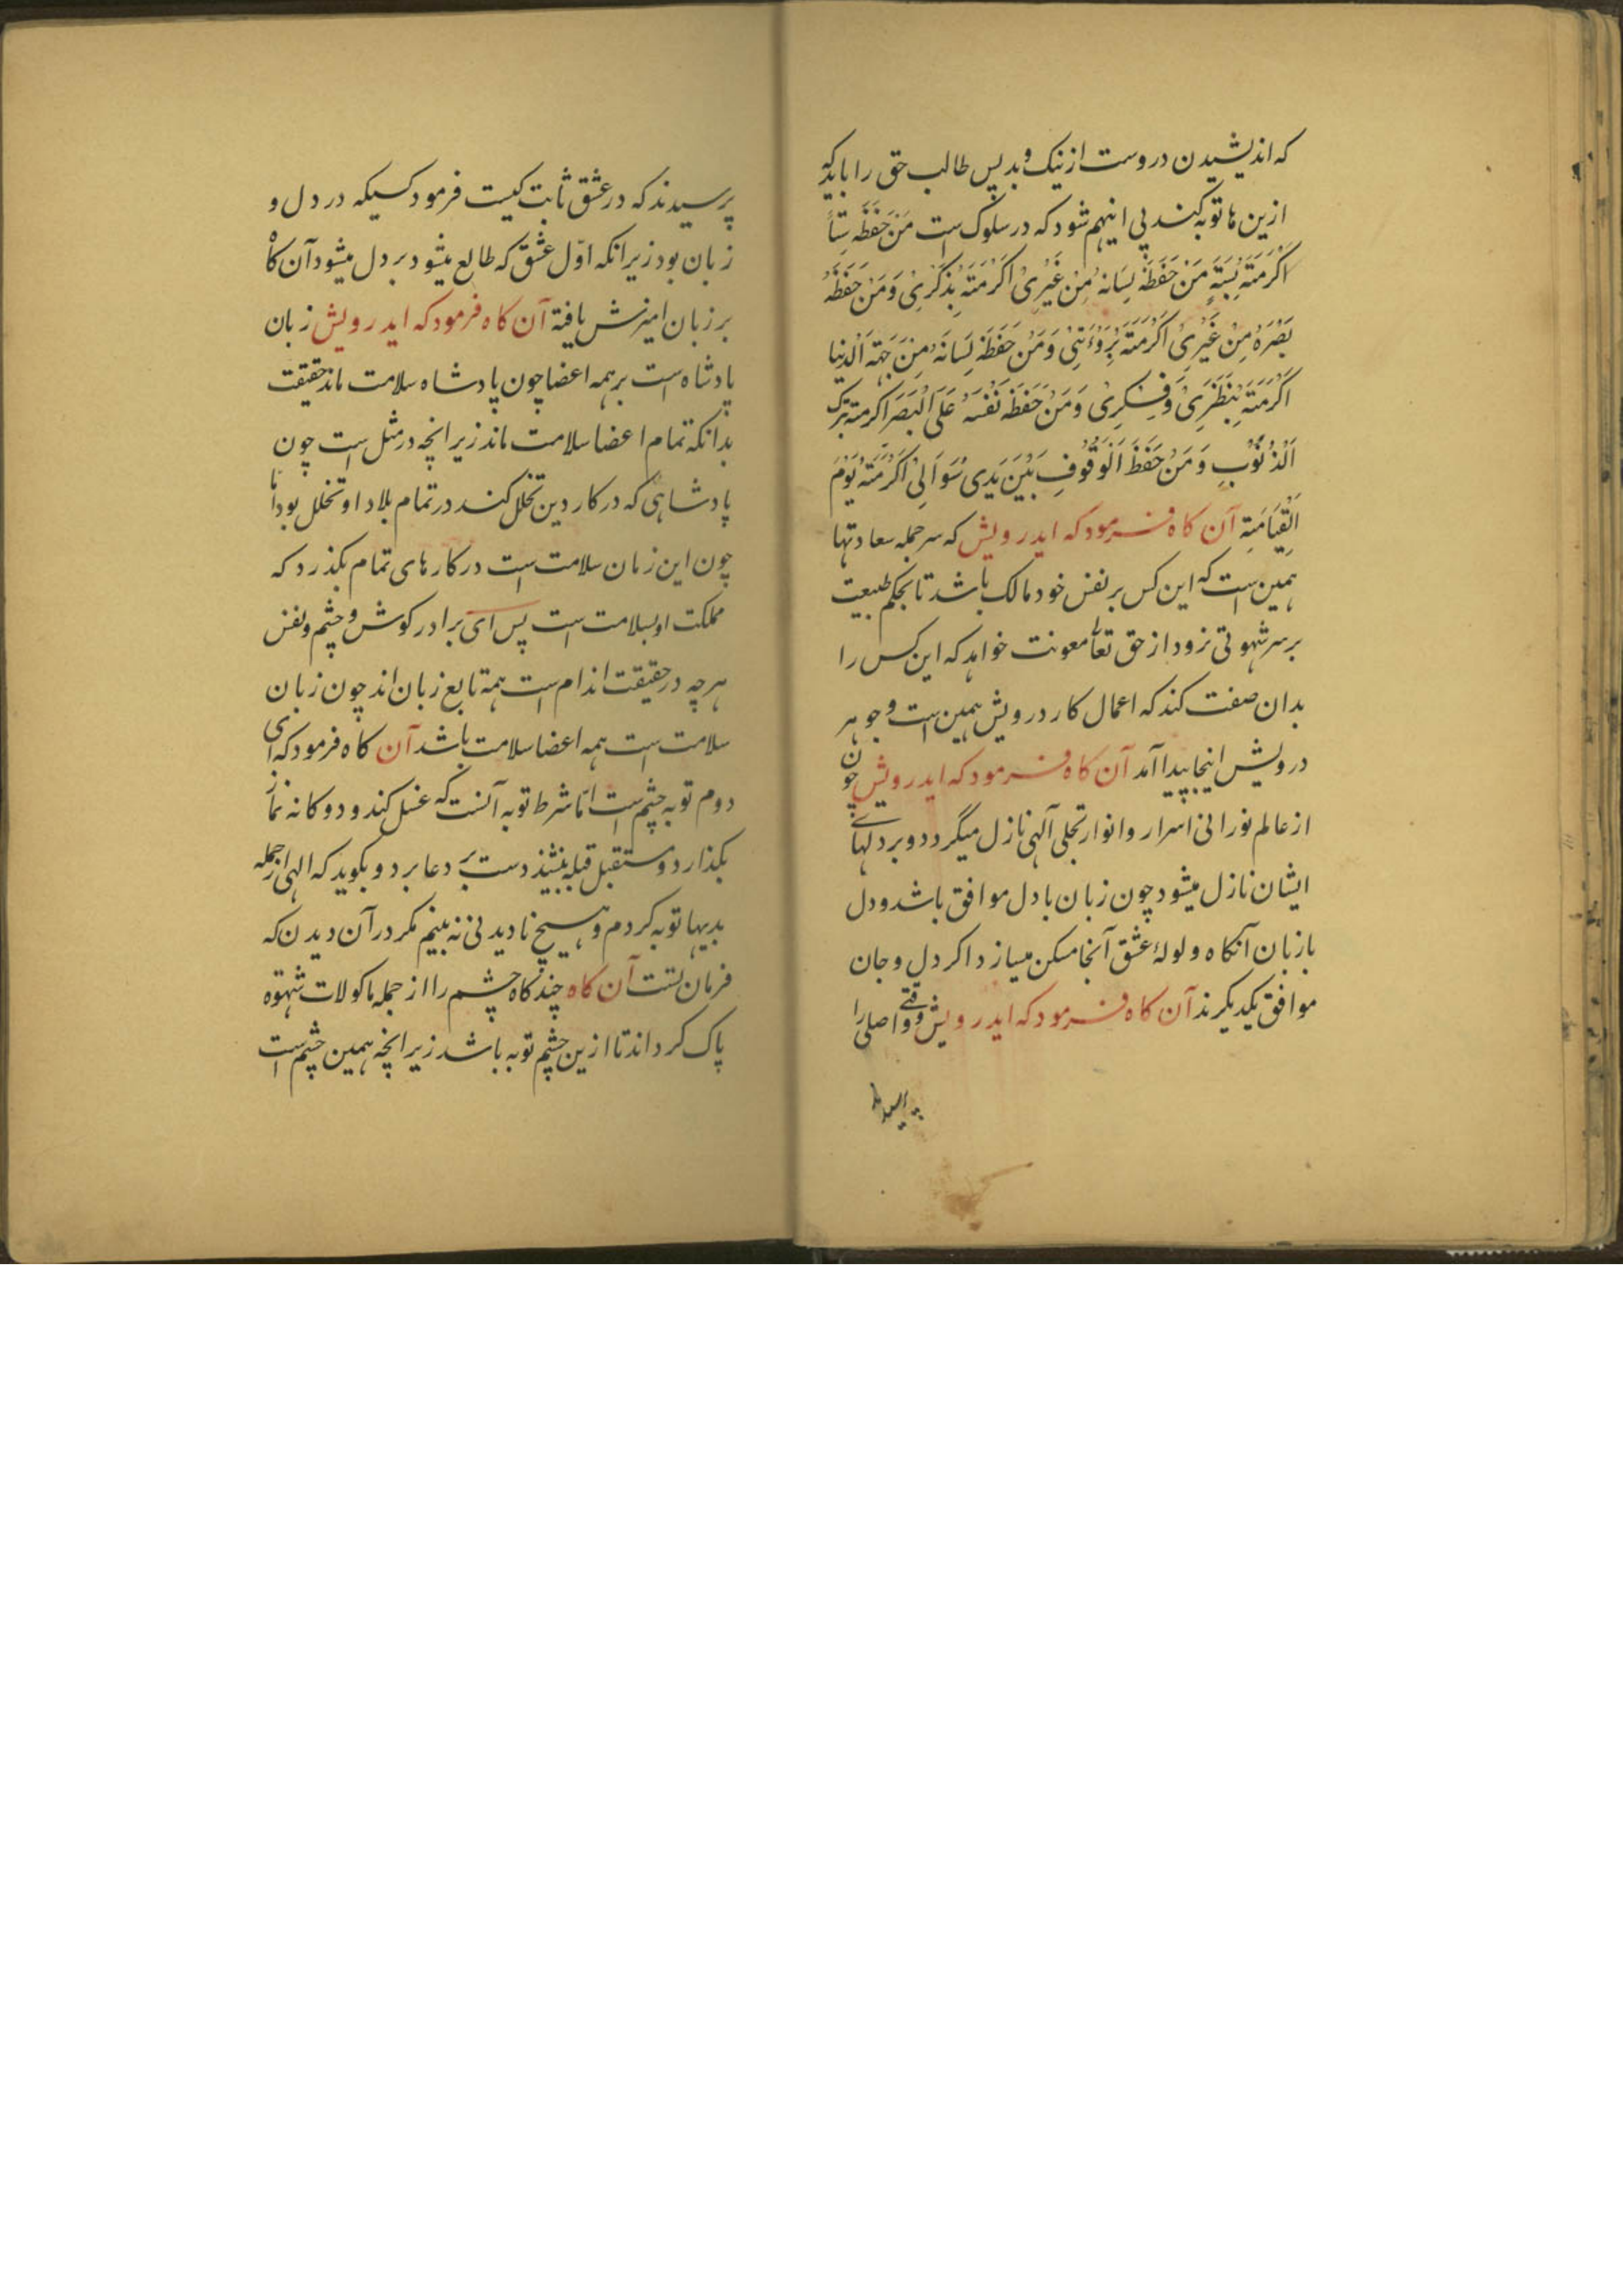 که اندیشیدن دروست از نیک و بد پس طالب حق را باید که
ازین ها توبه کند پی اینهم شود که در سلوک است مَن حَفَظَه سِتاً
اَکرَمتَه بِستَةٍ مَن حَفَظَه لِسَانه مِن غَیرِی اَکرَمتَه بِذکرِی وَ مَن حَفَظَه
بَصَرَهُ مِن غَیرِی اَکرَمتَه بِرُوءیَتِی وَ مَن حَفَظَه لِسَانَه مِن جَهَة الدنیا
اَکرَمتَه بِنَظَرِی وَ فِکرِی وَ مَن حَفَظَه نَفسَهُ عَلَی البَصَر اکرمته بترک
الَذُنُوبِ وَ مَن حَفَظَ الوَقُوفِ بَینَ یَدی سُوَالِی اَکرَمتَه یَومَ
القِیَامَتِه آن کاه فرمود که ایدرویش که سر جمله سعادتها
همین است که این کس بر نفس خود مالک باشد تا بحکم طبیعت
بر سر شهوتی نرود از حق تعالی معونت خواهد که این کس را
بدان صفت کند که اعمال کار درویش همین است و جوهر
درویش اینجا پیدا آمد آن کاه فرمود که ایدرویش چون
از عالم نورانی اسرار و انوار تجلی آلهی نازل میگردد و بر دلهای
ایشان نازل میشود چون زبان با دل موافق باشد و دل
با زبان آنکاه ولولهٔ عشق آنجا مسکن میسازد اکر دل و جان
موافق یکدیکرند آن کاه فرمود که ایدرویش وقتی واصلی را
پرسیدند
پرسیدند که در عشق ثابت کیست فرمود کسیکه در دل و
زبان بود زیرانکه اوّل عشق که طالع میشود بر دل میشود آن کاه
بر زبان امیزش یافته آن کاه فرمود که ایدرویش زبان
پادشاه است بر همه اعضا چون پادشاه سلامت ماند حقیقت
بدانکه تمام اعضا سلامت ماند زیرانچه در مثل است چون
پادشاهی که در کار دین تخلل کند در تمام بلاد او تخلل بود اما
چون این زمان سلامت است در کارهای تمام بکذرد که
مملکت او بسلامت است پس ای برادر کوش و چشم و نفس
هرچه در حقیقت اندام است همه تابع زبان اند چون زبان
سلامت است همه اعضا سلامت باشد آن کاه فرمود که ای
دوم توبه چشم است امّا شرط توبه آنست که غسل کند و دوکانه نماز
بکذارد و مستقبل قبله بنشیند دست بر دعا برد و بکوید که الهی از جمله
بدیها توبه کردم و هیچ نادیدنی نه بینم مکر در آن دیدن که
فرمان تست آن کاه چندکاه چشم را از جمله ماکولات شهوه
پاک کرداند تا ازین چشم توبه باشد زیرانچه همین چشم است